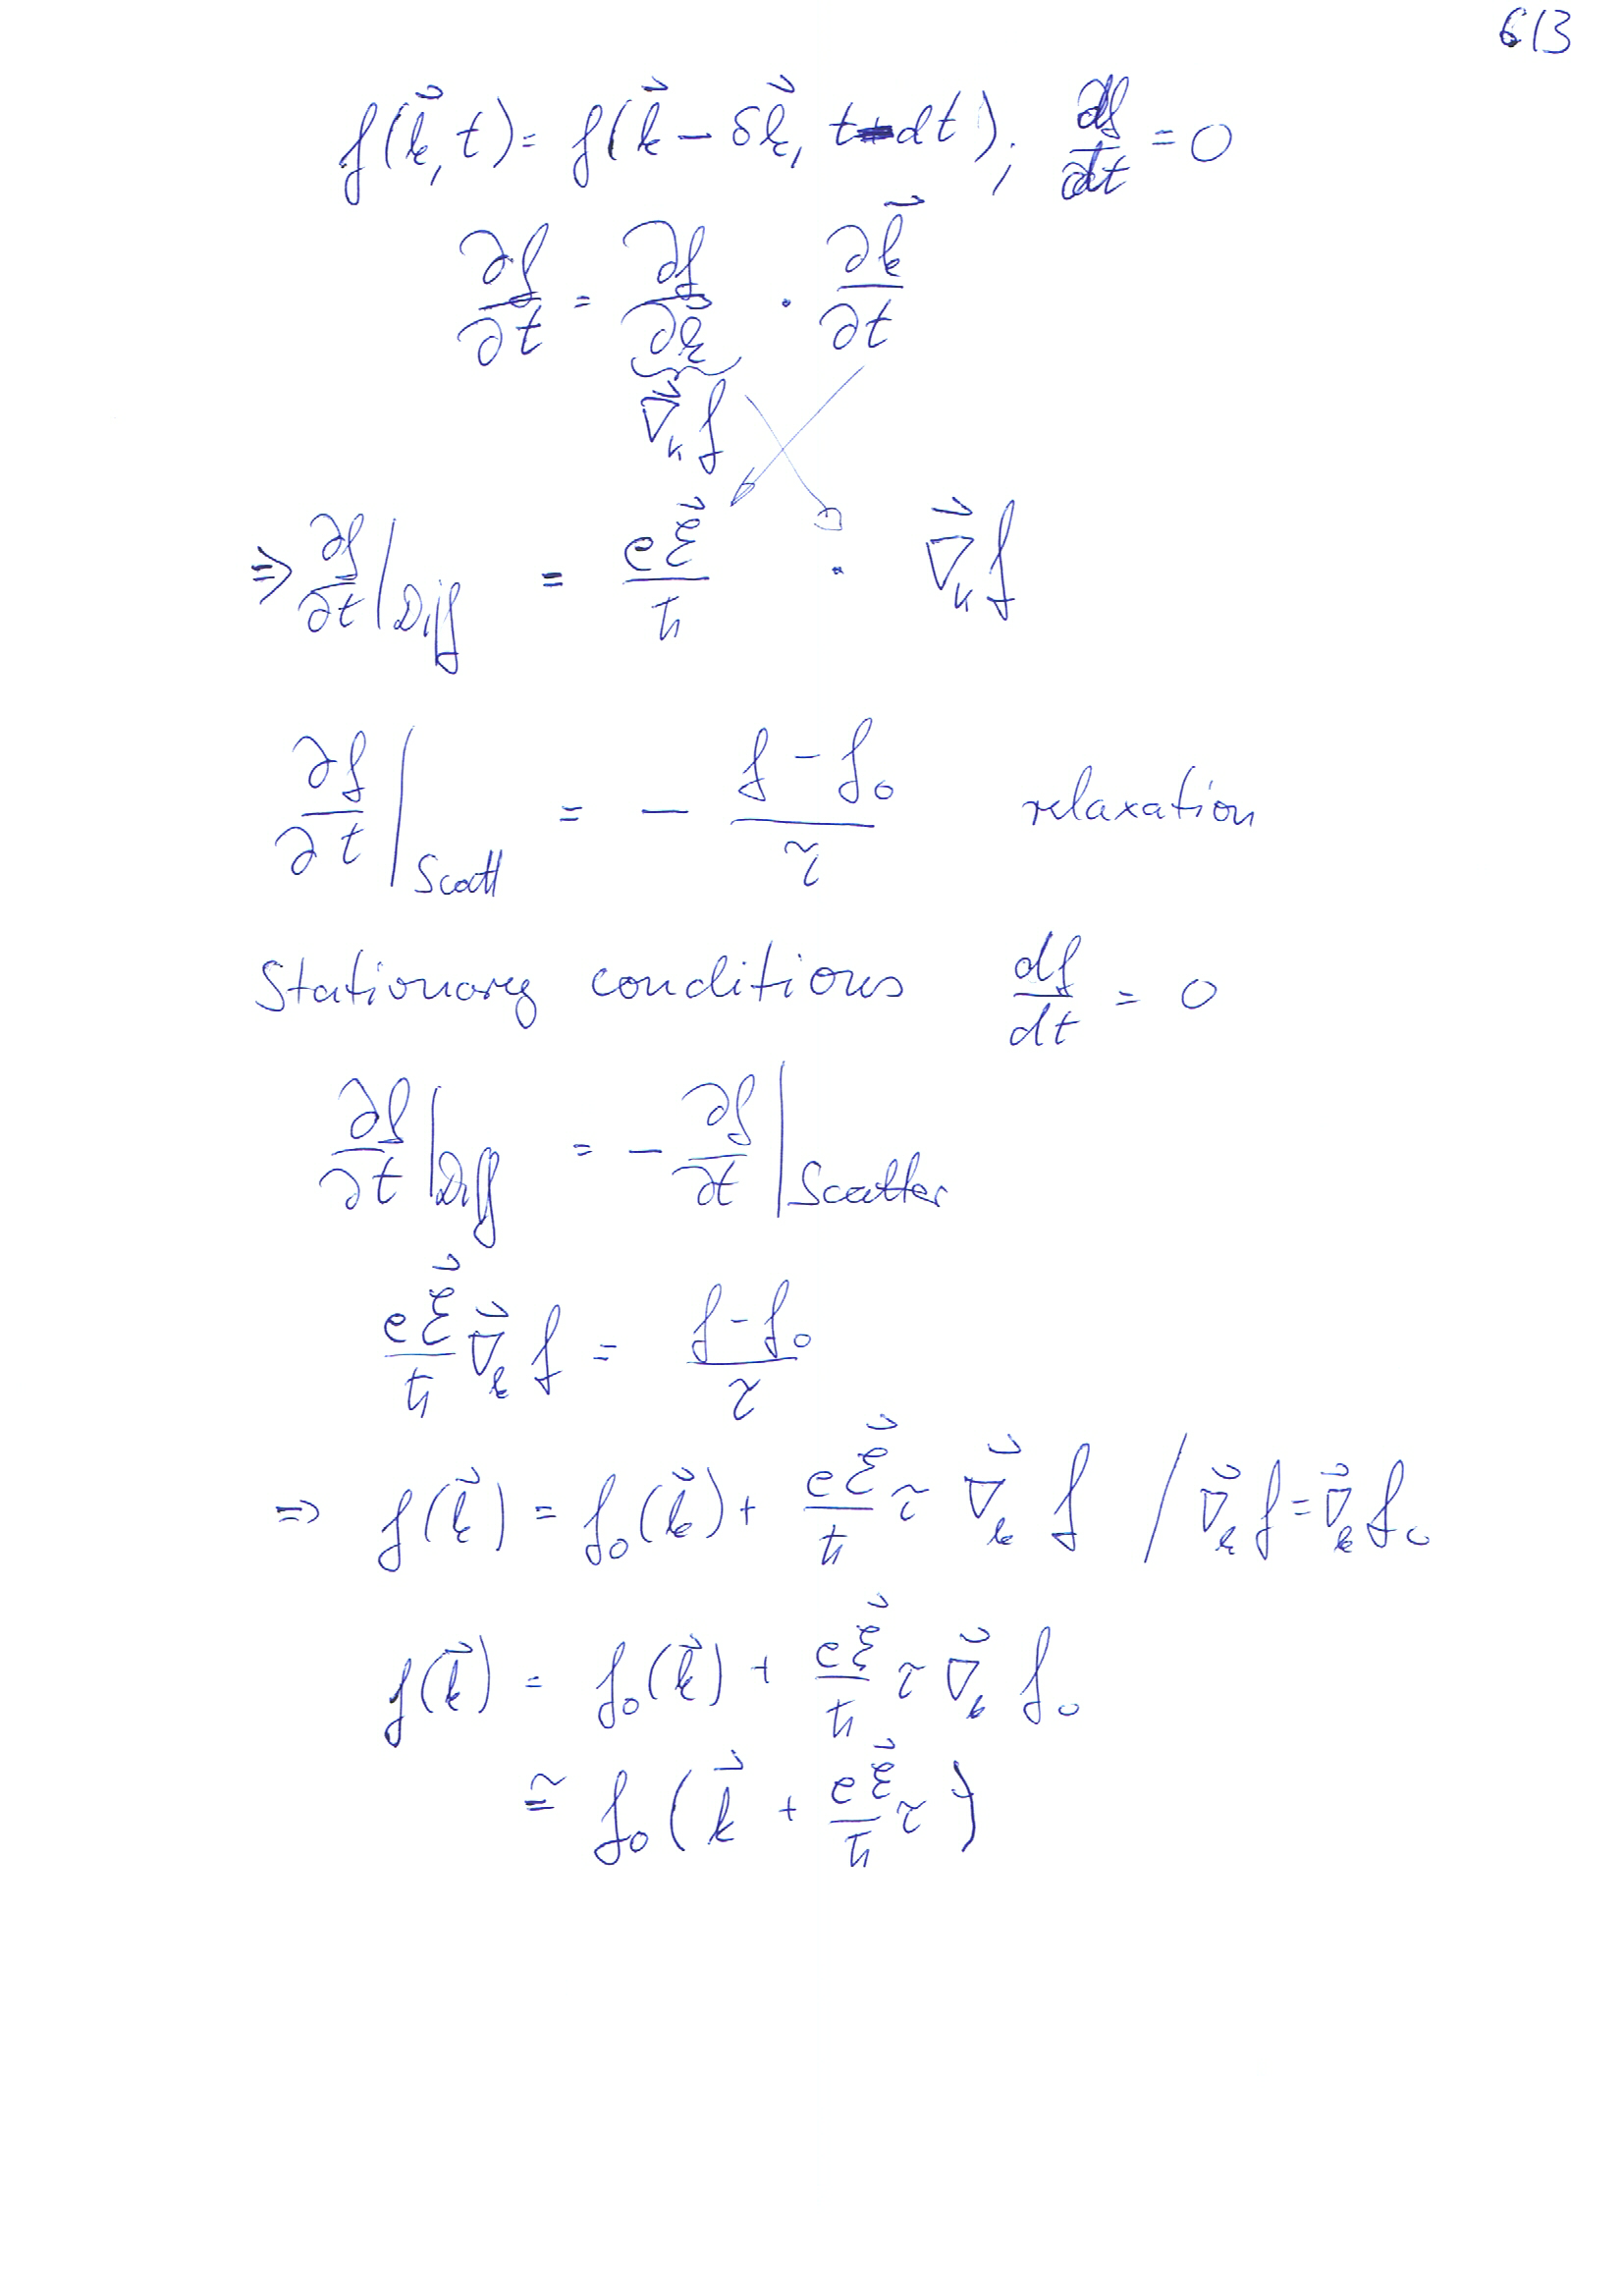 6/3
f(k⃗, t) = f(k⃗ − δk⃗, t − dt) ; ∂f/∂t = 0
∂f/∂t = ∂f/∂k⃗ · ∂k⃗/∂t
∇⃗ₖ f
⇒ ∂f/∂t |Diff = eℰ⃗/ħ · ∇⃗ₖ f
∂f/∂t |Scatt = − (f − f₀)/τ relaxation
Stationary conditions df/dt = 0
∂f/∂t |Diff = − ∂f/∂t |Scatter
eℰ⃗/ħ ∇⃗ₖ f = (f − f₀)/τ
⇒ f(k⃗) = f₀(k⃗) + eℰ⃗/ħ τ ∇⃗ₖ f / ∇⃗ₖ f = ∇⃗ₖ f₀
f(k⃗) = f₀(k⃗) + eℰ⃗/ħ τ ∇⃗ₖ f₀
≅ f₀(k⃗ + eℰ⃗/ħ τ)